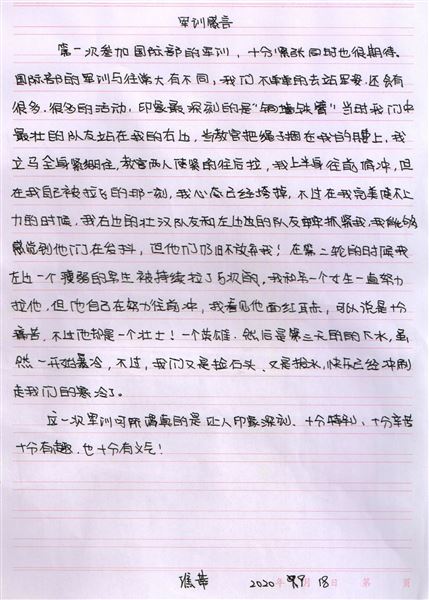 军训感言
第一次参加国际部的军训，十分紧张同时也很期待。
国际部的军训与往常大有不同，我们不单单的去站军姿，还会有
很多，很多的活动，印象最深刻的是"铜墙铁臂"当时我们中
最壮的队友站在我的右边，当教官把绳子捆在我的腰上，我
立马全身紧绷住，教官两人使劲的往后拉，我上半身往前倾冲，但
在我自己被拉飞的那一刻，我心态已经摆烂，不过在我完美使不上
力的时候，我右边的壮汉队友和左边的队友牢牢抓紧我，我能够
感觉到他们在发抖，但他们仍旧不放弃我！在第二轮的时候我
左边一个瘦弱的男生被持续拉了5次的，我和另一个女生一直努力
拉他，但他自己在努力往前冲，我看见他面红耳赤，可以说是十分
痛苦，不过他却是一个壮士！一个英雄。然后是第三天的的下水，虽
然一开始寒冷，不过，我们又是捡石头，又是拍水，快乐已经冲刷
走我们的寒冷了。
这一次军训可所谓真的是让人印象深刻、十分特别，十分辛苦
十分有趣，也十分有义气！
2020年9月18日 第 页